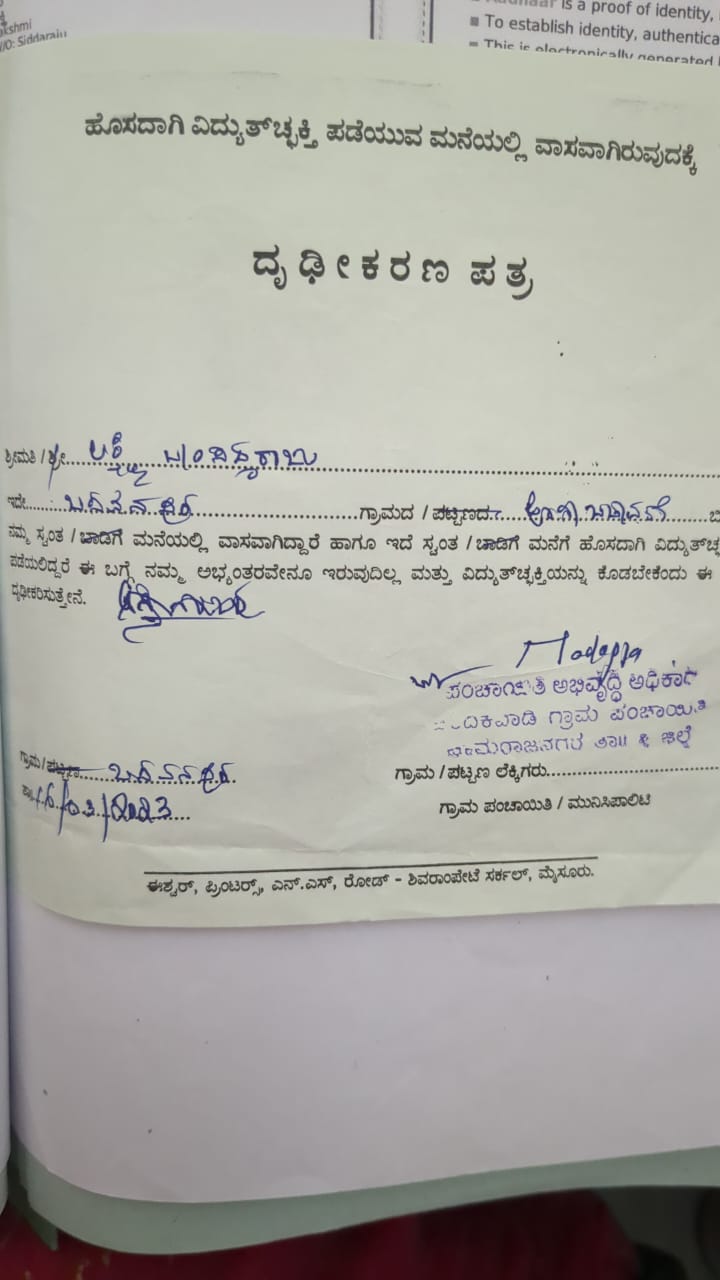 akshmi
/O: Siddaraju
is a proof of identity,
To establish identity, authentica
This is electronically generated
ಹೊಸದಾಗಿ ವಿದ್ಯುತ್‌ಚ್ಛಕ್ತಿ ಪಡೆಯುವ ಮನೆಯಲ್ಲಿ ವಾಸವಾಗಿರುವುದಕ್ಕೆ
ದೃಢೀಕರಣ ಪತ್ರ
ಶ್ರೀಮತಿ / ಶ್ರೀ ಲಕ್ಷ್ಮಿ
ಇದೇ ಬದನವಾಳು ಗ್ರಾಮದ / ಪಟ್ಟಣದ
ನಮ್ಮ ಸ್ವಂತ / ಬಾಡಿಗೆ ಮನೆಯಲ್ಲಿ ವಾಸವಾಗಿದ್ದಾರೆ ಹಾಗೂ ಇದೆ ಸ್ವಂತ / ಬಾಡಿಗೆ ಮನೆಗೆ ಹೊಸದಾಗಿ ವಿದ್ಯುತ್‌ಚ್ಛ
ಪಡೆಯಲಿದ್ದರೆ ಈ ಬಗ್ಗೆ ನಮ್ಮ ಅಭ್ಯಂತರವೇನೂ ಇರುವುದಿಲ್ಲ ಮತ್ತು ವಿದ್ಯುತ್‌ಚ್ಛಕ್ತಿಯನ್ನು ಕೊಡಬೇಕೆಂದು ಈ
ದೃಢೀಕರಿಸುತ್ತೇನೆ.
Madappa
ಪಂಚಾಯಿತಿ ಅಭಿವೃದ್ಧಿ ಅಧಿಕಾರಿ
ಗ್ರಾಮ ಪಂಚಾಯಿತಿ
ಚಾಮರಾಜನಗರ ತಾ॥ & ಜಿಲ್ಲೆ
ಗ್ರಾಮ / ಪಟ್ಟಣ
ಗ್ರಾಮ / ಪಟ್ಟಣ ಲೆಕ್ಕಿಗರು
/03/2023
ಗ್ರಾಮ ಪಂಚಾಯಿತಿ / ಮುನಿಸಿಪಾಲಿಟಿ
ಈಶ್ವರ್, ಪ್ರಿಂಟರ್ಸ್, ಎನ್.ಎಸ್, ರೋಡ್ - ಶಿವರಾಂಪೇಟೆ ಸರ್ಕಲ್, ಮೈಸೂರು.